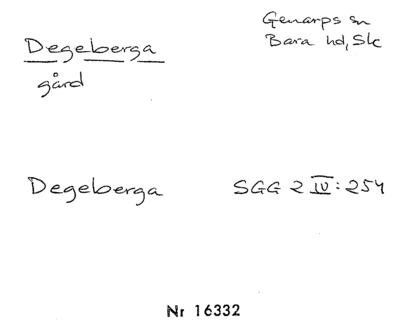 Degeberga
gård
Genarps sn
Bara hd, Sk
Degeberga SGG 2 IV: 254
Nr 16332